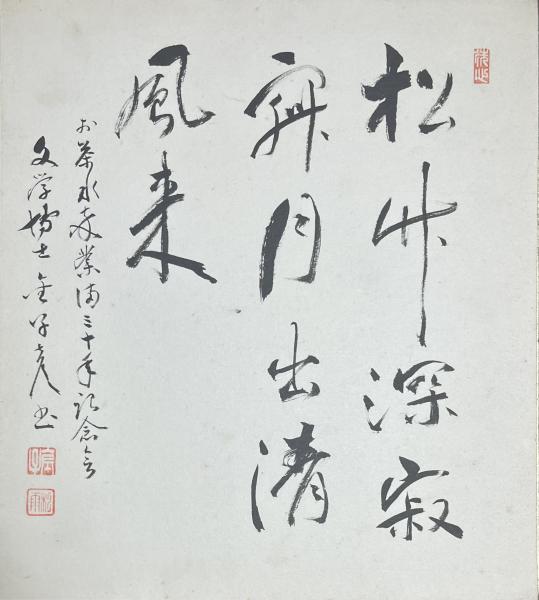 松竹深寂
寂月出清
風来
お茶水卒業満三十年記念会
文学博士金子彦書